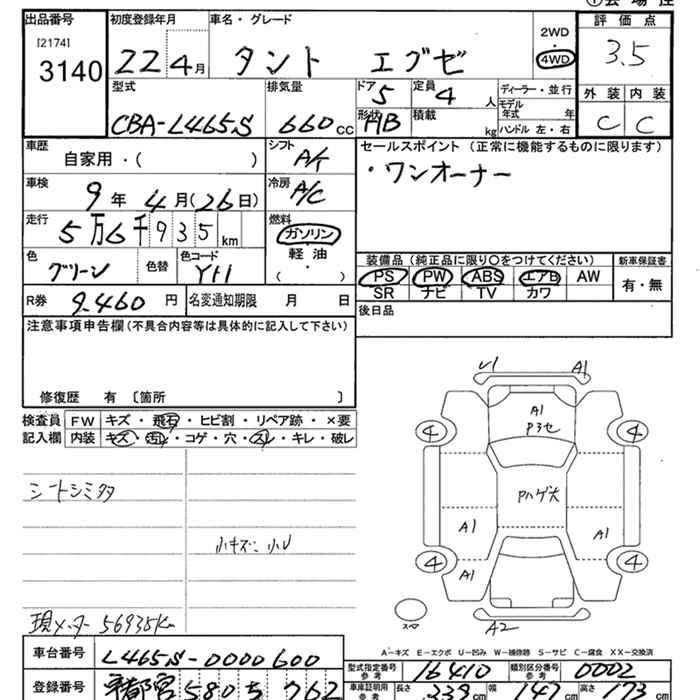 出品番号
[2174]
3140
初度登録年月
22 4月
車名・グレード
タント エグゼ
2WD
4WD
評価点
3.5
外装 内装
C C
型式
CBA-L465S
排気量
660 cc
ドア
5
定員
4 人
形状
HB
積載
kg
ディーラー・並行
モデル年式 年
ハンドル 左・右
車歴
自家用・( )
シフト
A/T
車検
9年 4月(26日)
冷房
A/C
走行
5万6千935 km
燃料
ガソリン
軽油
( )
色
グリーン
色替
色コード
R券
9.460 円
名変通知期限 月 日
セールスポイント(正常に機能するものに限ります)
・ワンオーナー
装備品(純正品に限り〇をつけてください)
PS PW ABS エアB AW
SR ナビ TV カワ
新車保証書
有・無
後日品
注意事項申告欄(不具合内容等は具体的に記入して下さい)
修復歴 有 〔箇所 〕
検査員記入欄
FW キズ・飛石・ヒビ割・リペア跡・×要
内装 キズ・汚れ・コゲ・穴・スレ・キレ・破レ
シートシミ
小キズ、小U
現メーター 56935km
U1 A1
A1
P3セ
4 4
Pハゲ大
A1 A1
4 4
A1
スペア
A2
A―キズ E―エクボ U―凹み W―補修跡 S―サビ C―腐食 XX―交換済
車台番号
L465S-0000600
登録番号
580
型式指定番号
参考
16410
類別区分番号
参考
0002
車庫証明用
参考
長さ
339 cm
幅
147 cm
高さ
173 cm